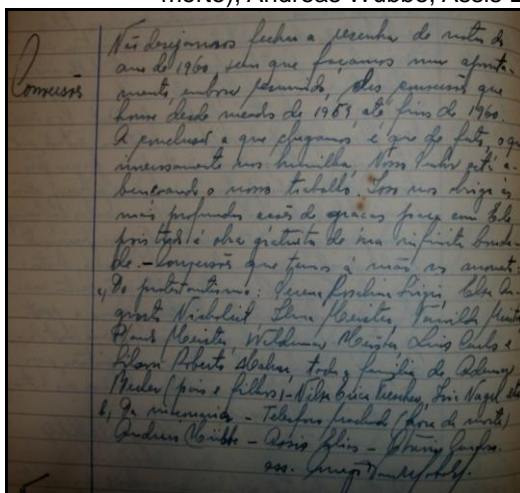 morte), Andreas Wubbe, Assis E
Não desejamos fechar a resenha de notas do
Conversões
ano de 1960 sem que façamos um aponta-
mento, embora resumido, das conversões que
houve desde meados de 1959 até fins de 1960.
A conclusão a que chegamos é que de fato, o que
imensamente nos humilha, Nosso Senhor está a-
bençoando o nosso trabalho. Isso nos obriga as
mais profundas ações de graças para com Ele
pois tudo é obra gratuita de sua infinita bonda-
de. - Conversões que temos à mão no momento:
a) Do protestantismo:
Nicboleit, Meister,
Meister, Wildemar Meister, Luis Carlos e
Roberto toda a família de Ademar
Becker (pais e filhos) - Nilza Erica Nagel
b) Da maçonaria - (hora da morte)
Andreas Wübbe - Assis Elias -
ass.